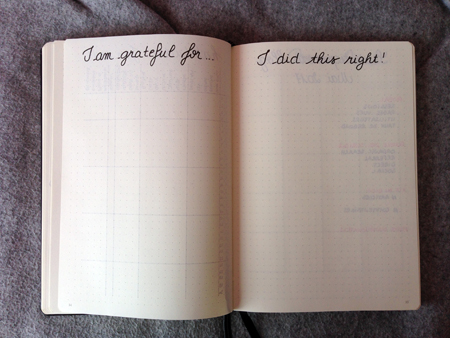 I am grateful for...
I did this right!